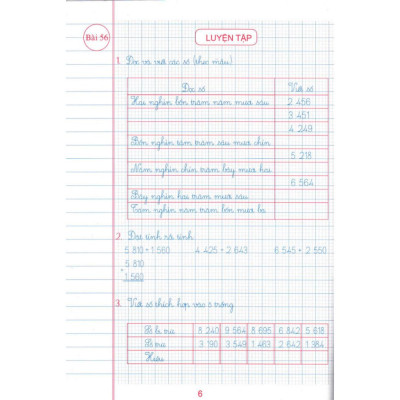 Bài 56
LUYỆN TẬP
1. Đọc và viết các số (theo mẫu)
Đọc số Viết số
Hai nghìn bốn trăm năm mươi sáu 2 456
3 451
4 249
Bốn nghìn tám trăm sáu mươi chín
5 218
Năm nghìn chín trăm bảy mươi hai
6 564
Bảy nghìn hai trăm mươi sáu
Tám nghìn năm trăm bốn mươi ba
2. Đặt tính rồi tính
5 810 + 1 560 4 425 + 2 643 6 545 + 2 550
5 810
+
1 560
3. Viết số thích hợp vào ô trống
Số bị trừ 8 240 9 564 8 695 6 842 5 618
Số trừ 3 190 3 549 1 463 2 642 1 984
Hiệu
6